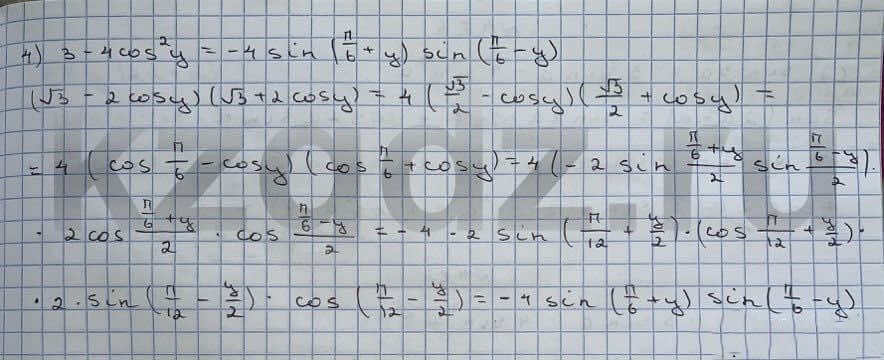 4) 3 - 4cos²y = -4 sin (π/6 + y) sin (π/6 - y)
(√3 - 2cosy)(√3 + 2cosy) = 4 (√3/2 - cosy)(√3/2 + cosy) =
= 4 (cos π/6 - cosy)(cos π/6 + cosy) = 4 (-2 sin (π/6 + y)/2 sin (π/6 - y)/2) ·
· 2cos (π/6 + y)/2 · cos (π/6 - y)/2 = -4 · 2 sin (π/12 + y/2) · (cos π/12 + y/2) ·
· 2 · sin (π/12 - y/2) · cos (π/12 - y/2) = -4 sin (π/6 + y) sin (π/6 - y)
kzgdz.ru